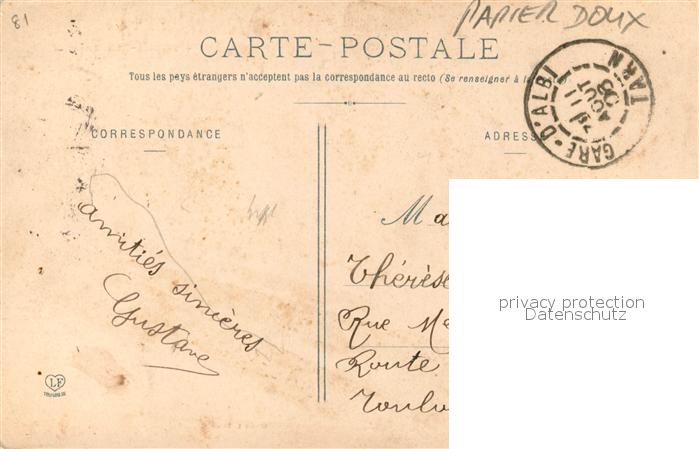 81
PAPIER DOUX
CARTE-POSTALE
Tous les pays étrangers n'acceptent pas la correspondance au recto (Se renseigner à la
CORRESPONDANCE
ADRESSE
GARE-D'ALBI TARN
11
AOUT
Ma
amitiés sincères
Gustave
Thérèse
Rue
Route
Toulo
privacy protection
Datenschutz
LF